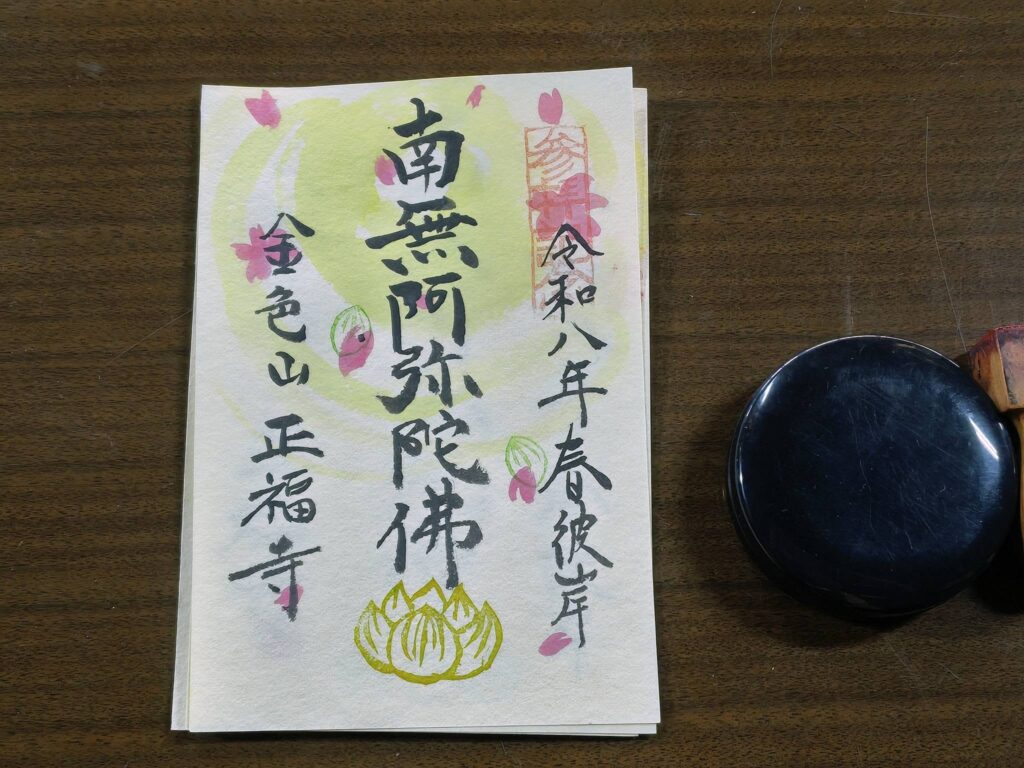 令和八年春彼岸
南無阿弥陀佛
金色山正福寺